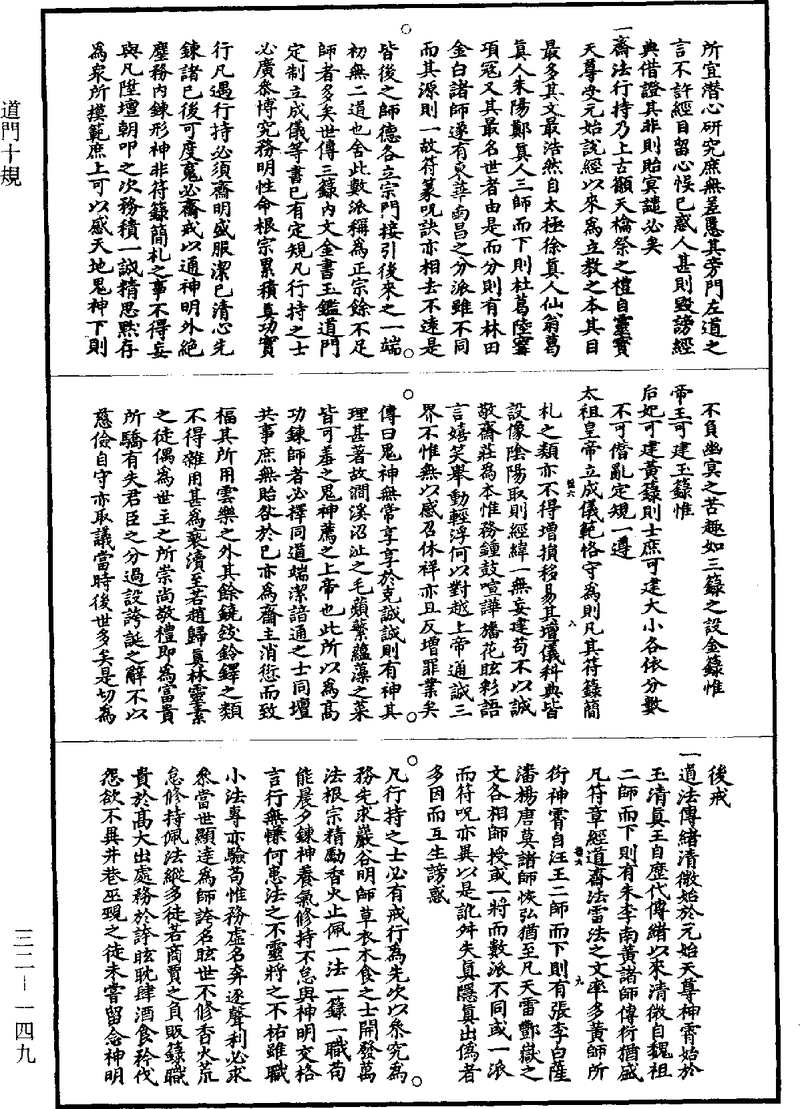 所宜潛心研究庶無差慝其旁門左道之
言不許經目留心悞已惑人甚則毀謗經
典借證其非則貽冥譴必矣
一齋法行持乃上古籲天檜祭之禮自靈寶
天尊受元始說經以來為立教之本其目
最多其文最浩然自太極徐真人仙翁葛
真人朱陽鄭真人三師而下則杜葛陸寗
項寇又其最名世者由是而分則有林田
金白諸師遂有東華南昌之分派雖不同
而其源則一故符篆呪訣亦相去不遠是
皆後之師德各立宗門接引後來之一端
初無二道也舍此數派稱為正宗餘不足
師者多矣世傳三籙內文金書玉鑑道門
定制立成儀等書已有定規凡行持之士
必廣叅博究務明性命根宗累積真功實
行凡遇行持必須齋明盛服潔已清心先
鍊諸已後可度䰟必齋戒以通神明外絕
塵務內鍊形神非符籙簡札之事不得妄
與凡陞壇朝叩之次務積一誠精思默存
為衆所摸範庶上可以感天地鬼神下則
不負幽冥之苦趣如三籙之設金籙惟
帝王可建玉籙惟
后妃可建黃籙則士庶可建大小各依分數
不可僭亂定規一遵
太祖皇帝立成儀範恪守為則凡其符籙簡
札之類亦不得增損移易其壇儀科典皆
設像陰陽取則經緯一無妄建苟不以誠
敬齋莊為本惟務鍾鼓喧譁旛花眩彩語
言嬉笑舉動輕浮何以對越上帝通誠三
界不惟無以感召休祥亦且反增罪業矣
傳曰鬼神無常享享於克誠誠則有神其
理甚著故澗溪沼沚之毛蘋蘩蘊藻之菜
皆可羞之鬼神薦之上帝也此所以為高
功鍊師者必擇同道端潔諳通之士同壇
共事庶無貽咎於已亦為齋主消愆而致
福其所用雲樂之外其餘鐃鈸鈴鐸之類
不得雜用甚為褻瀆至若趙歸真林靈素
之徒偶為世主之所崇尚敬禮即為富貴
所驕有失君臣之分過設誇誕之辭不以
慈儉自守亦取議當時後世多矣是切為
後戒
一道法傳緒清微始於元始天尊神霄始於
玉清真王自歷代傳緒以來清微自魏祖
二師而下則有朱李南黃諸師傳衍猶盛
凡符章經道齋法雷法之文率多黃師所
衍神霄自汪王二師而下則有張李白薩
潘楊唐莫諸師恢弘猶至凡天雷酆嶽之
文各相師授或一將而數派不同或一派
而符呪亦異以是訛舛失真隱真出偽者
多因而互生謗惑
凡行持之士必有戒行為先次以叅究為
務先求巖谷明師草衣木食之士開發萬
法根宗精勵香火止佩一法一籙一職苟
能晨夕鍊神養氣修持不怠與神明交格
言行無慊何患法之不靈將之不祐雖職
小法專亦驗苟惟務虛名奔逐聲利必求
叅當世顯達為師誇名眩世不修香火荒
怠修持佩法縱多徒若商賈之負販籙職
貴於高大出處務於誇眩耽肆酒食矜伐
怨欲不異井巷巫覡之徒未嘗留念神明
道門十規
三二-一四九
極六
八
極六
九